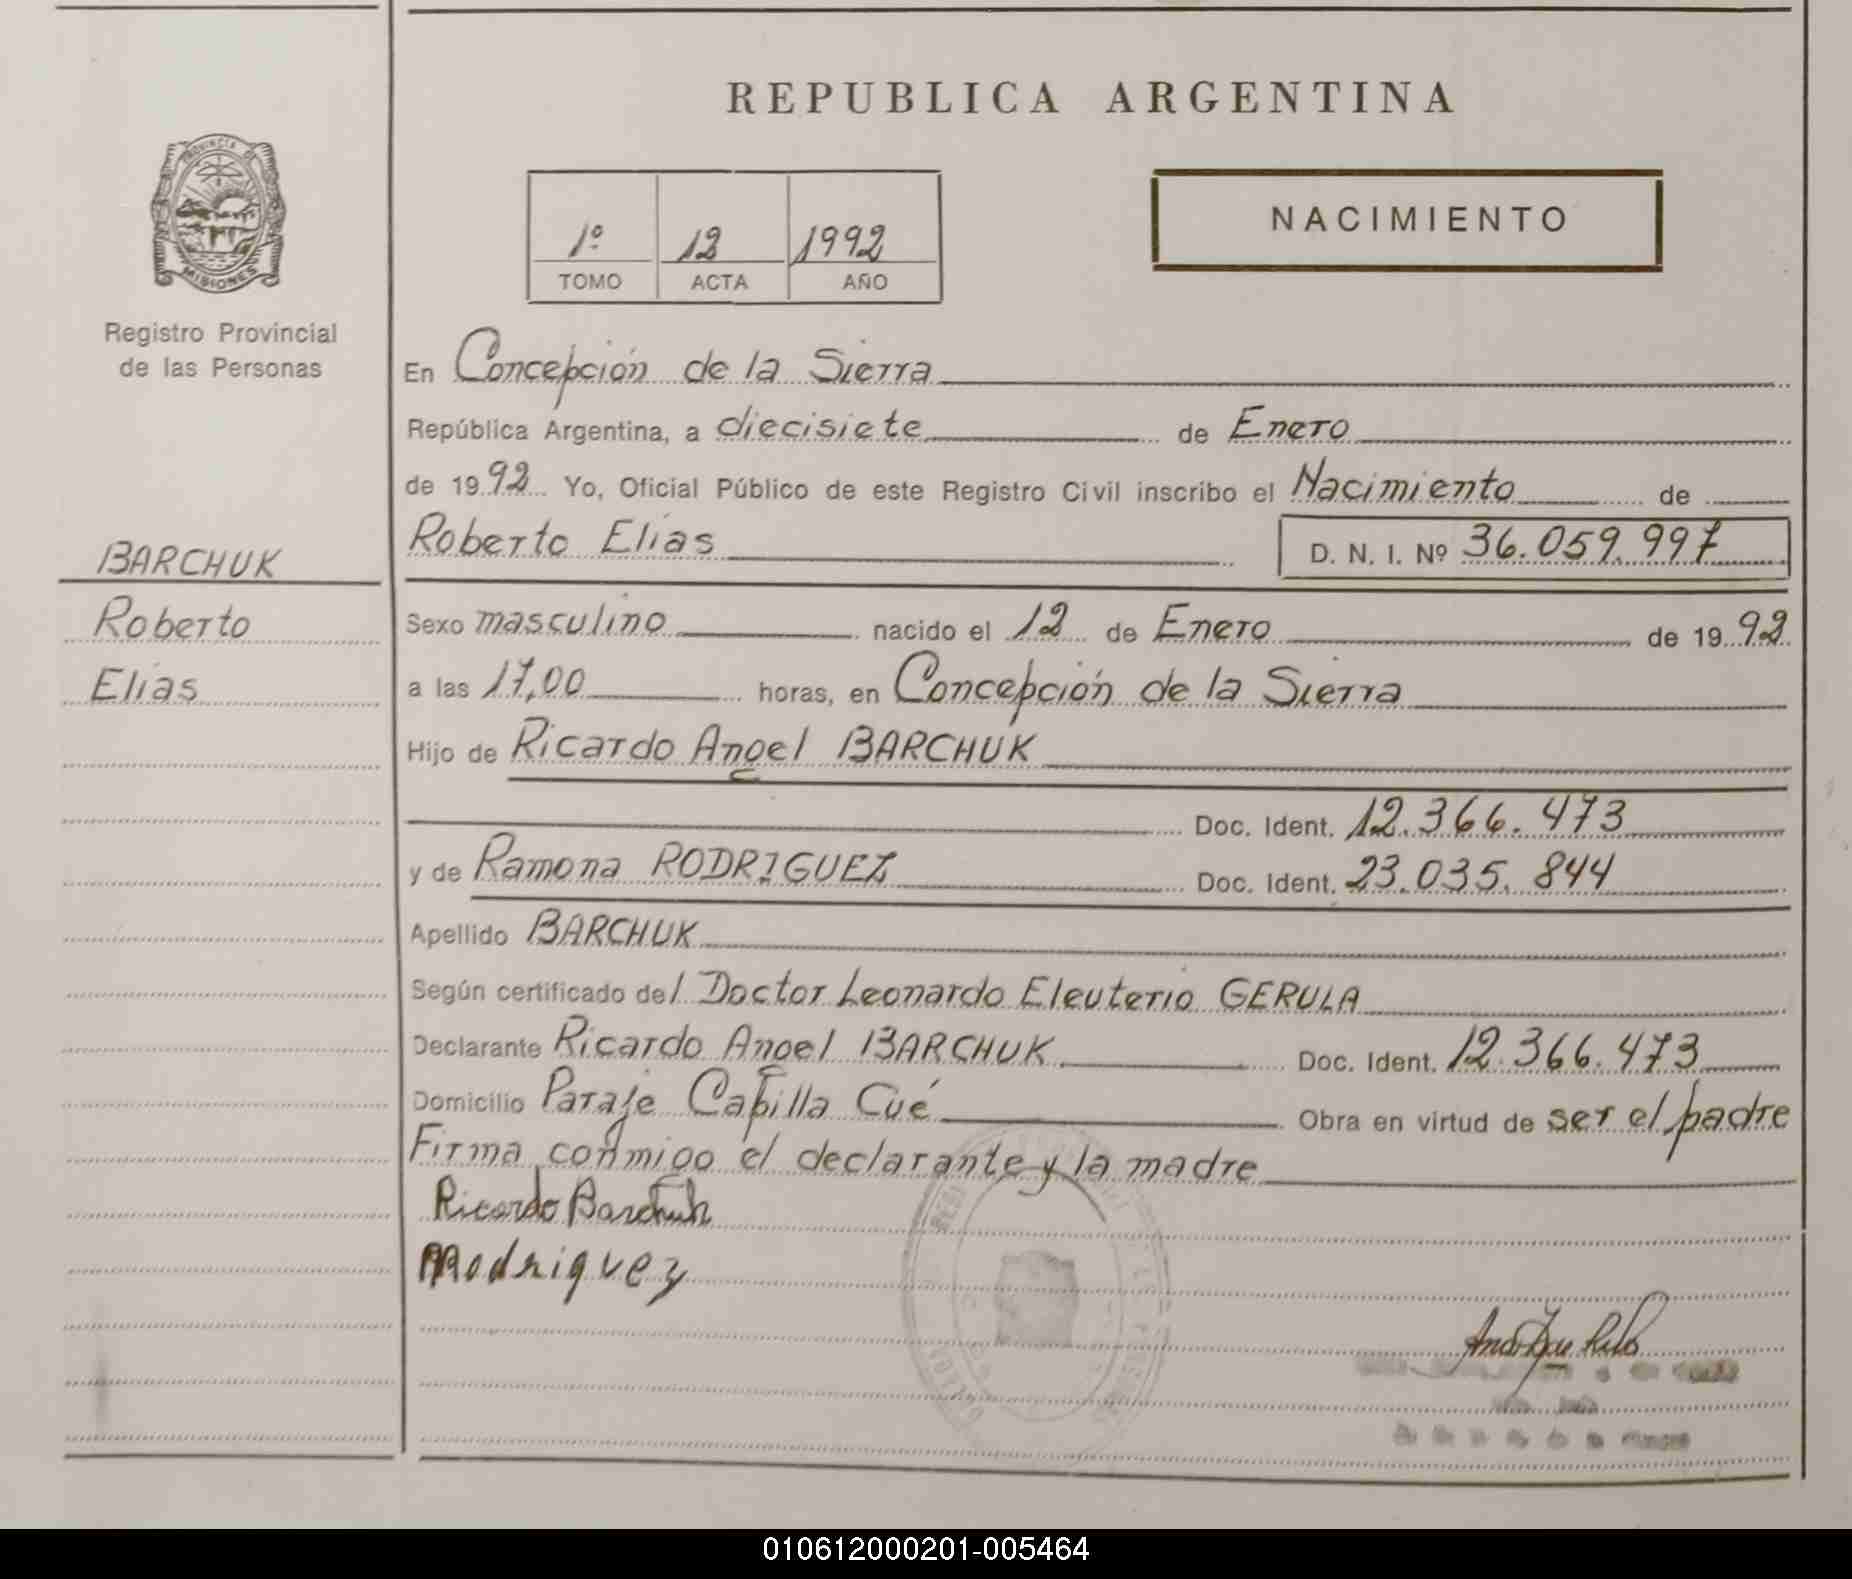 REPUBLICA ARGENTINA
PROVINCIA DE
MISIONES
Registro Provincial
de las Personas
1º 12 1992
TOMO ACTA AÑO
NACIMIENTO
En Concepción de la Sierra
República Argentina, a diecisiete de Enero
de 1992 Yo, Oficial Público de este Registro Civil inscribo el Nacimiento de
Roberto Elías D. N. I. Nº 36.059.997
BARCHUK
Roberto
Elías
Sexo masculino nacido el 12 de Enero de 1992
a las 17,00 horas, en Concepción de la Sierra
Hijo de Ricardo Angel BARCHUK
Doc. Ident. 12.366.473
y de Ramona RODRIGUEZ Doc. Ident. 23.035.844
Apellido BARCHUK
Según certificado del Doctor Leonardo Eleuterio GERULA
Declarante Ricardo Angel BARCHUK Doc. Ident. 12.366.473
Domicilio Paraje Capilla Cué Obra en virtud de ser el padre
Firma conmigo el declarante y la madre
Ricardo Barchuk
Rodriguez
010612000201-005464